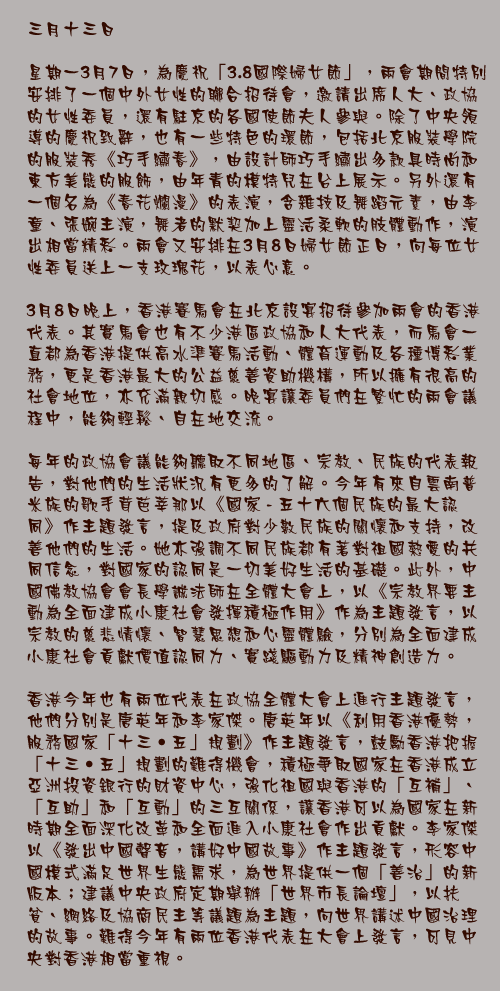 三月十三日
星期一3月7日，為慶祝「3.8國際婦女節」，兩會期間特別
安排了一個中外女性的聯合招待會，邀請出席人大、政協
的女性委員，還有駐京的各國使節夫人參與。除了中央領
導的慶祝致辭，也有一些特色的環節，包括北京服裝學院
的服裝秀《巧手嬌秀》，由設計師巧手嬌出多款具時尚和
東方美態的服飾，由年青的模特兒在台上展示。另外還有
一個名為《青花爛漫》的表演，含雜技及舞蹈元素，由李
童、張婉主演，舞者的默契加上靈活柔軟的肢體動作，演
出相當精彩。兩會又安排在3月8日婦女節正日，向每位女
性委員送上一支玫瑰花，以表心意。
3月8日晚上，香港賽馬會在北京設宴招待參加兩會的香港
代表。其實馬會也有不少港區政協和人大代表，而馬會一
直都為香港提供高水準賽馬活動、體育運動及各種博彩業
務，更是香港最大的公益慈善資助機構，所以擁有很高的
社會地位，亦充滿親切感。晚宴讓委員們在繁忙的兩會議
程中，能夠輕鬆、自在地交流。
每年的政協會議能夠聽取不同地區、宗教、民族的代表報
告，對他們的生活狀況有更多的了解。今年有來自雲南普
米族的歌手茸芭莘那以《國家 - 五十六個民族的最大認
同》作主題發言，提及政府對少數民族的關懷和支持，改
善他們的生活。她亦強調不同民族都有著對祖國熱愛的共
同信念，對國家的認同是一切美好生活的基礎。此外，中
國佛教協會會長學誠法師在全體大會上，以《宗教界要主
動為全面建成小康社會發揮積極作用》作為主題發言，以
宗教的慈悲情懷、智慧思想和心靈體驗，分別為全面建成
小康社會貢獻價值認同力、實踐驅動力及精神創造力。
香港今年也有兩位代表在政協全體大會上進行主題發言，
他們分別是唐英年和李家傑。唐英年以《利用香港優勢，
服務國家「十三•五」規劃》作主題發言，鼓勵香港把握
「十三•五」規劃的難得機會，積極爭取國家在香港成立
亞洲投資銀行的財資中心，強化祖國與香港的「互補」、
「互助」和「互動」的三互關係，讓香港可以為國家在新
時期全面深化改革和全面進入小康社會作出貢獻。李家傑
以《發出中國聲音，講好中國故事》作主題發言，形容中
國模式滿足世界生態需求，為世界提供一個「善治」的新
版本；建議中央政府定期舉辦「世界市長論壇」，以扶
貧、網路及協商民主等議題為主題，向世界講述中國治理
的故事。難得今年有兩位香港代表在大會上發言，可見中
央對香港相當重視。